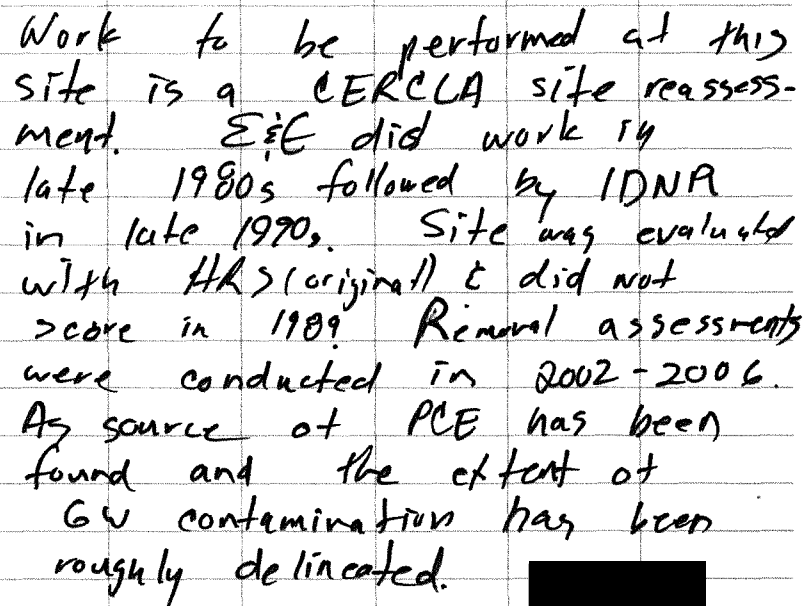 Work to be performed at this
site is a CERCLA site reassess-
ment. E&E did work in
late 1980s followed by IDNR
in late 1990s. Site was evaluated
with HRS (original) & did not
score in 1989. Removal assessments
were conducted in 2002-2006.
As source of PCE has been
found and the extent of
GW contamination has been
roughly delineated.